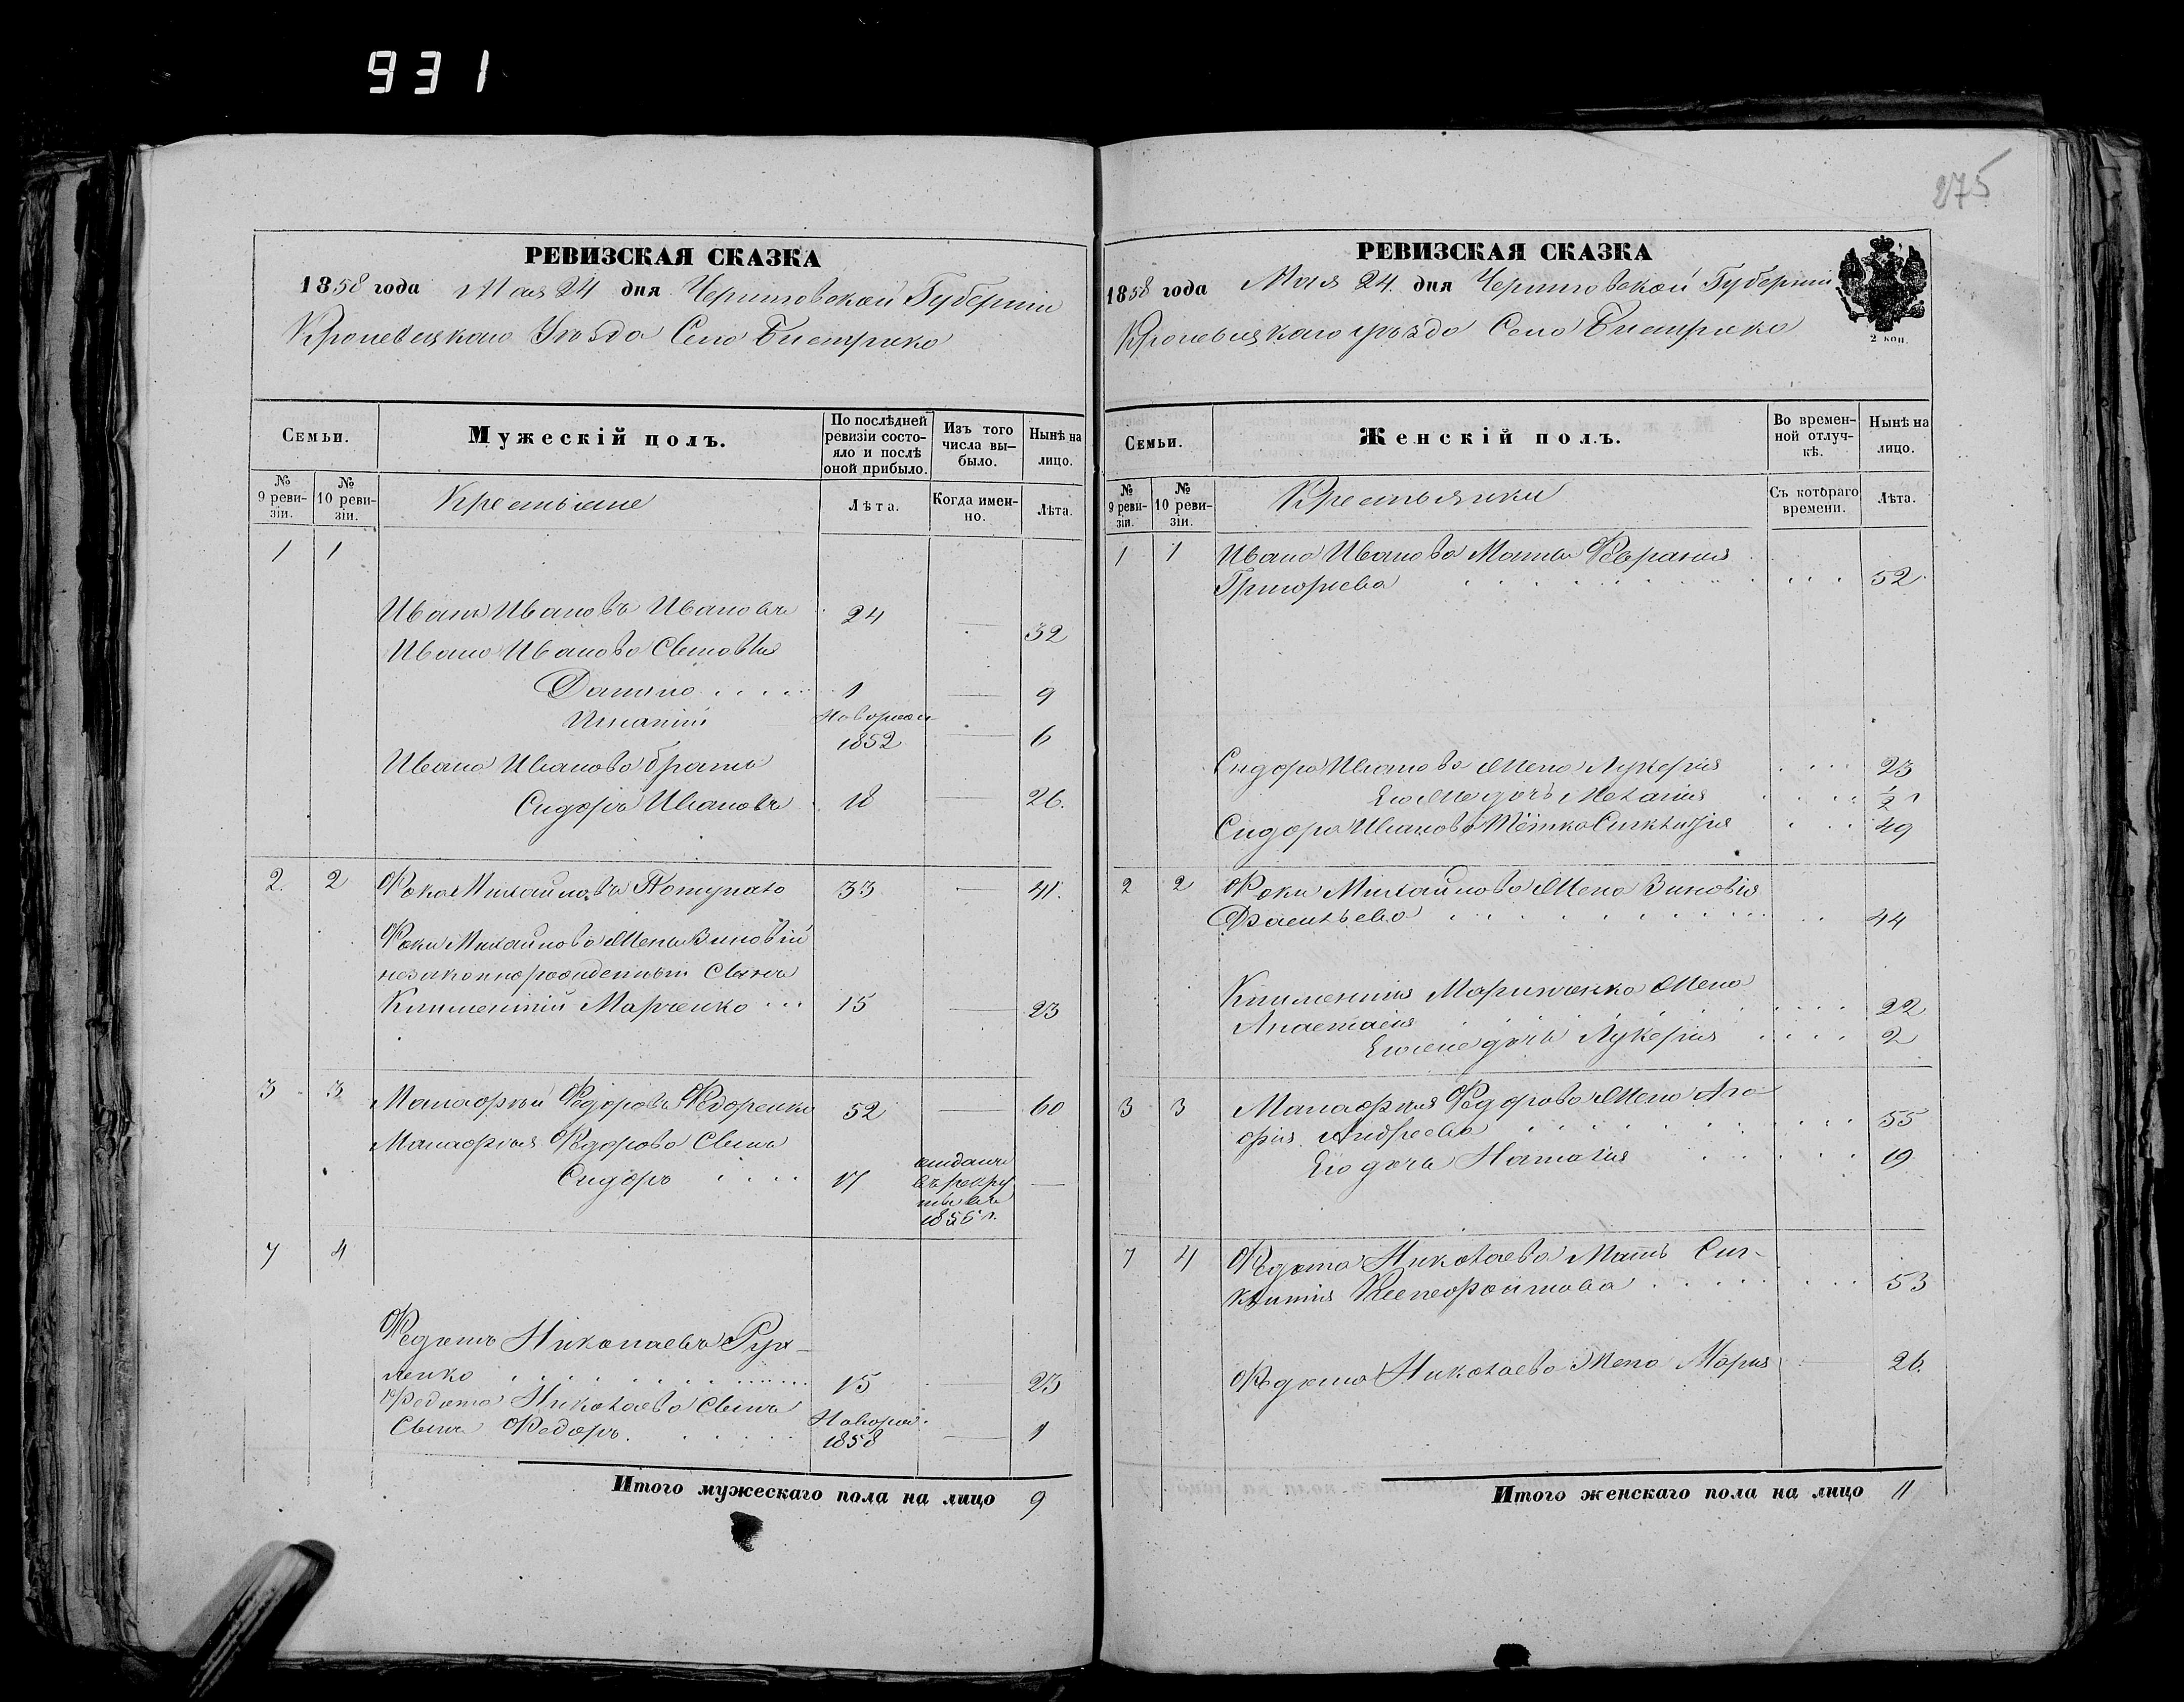 931
275
РЕВИЗСКАЯ СКАЗКА
1858 года Мая 24 дня Черниговской Губернии
Кролевецкаго Уѣзда Село Бистрика
Семьи.
Мужескій полъ.
По послѣдней ревизіи состояло и послѣ оной прибыло.
Изъ того числа выбыло.
Нынѣ на лицо.
№ 9 ревизіи.
№ 10 ревизіи.
Крестьяне
Лѣта.
Когда именно.
Лѣта.
1 1
Иванъ Ивановъ Ивановъ 24 — 32
Ивана Иванова Сыновья
Данило . . . . 1 — 9
Игнатій Новорож 1852 — 6
Ивана Иванова братъ
Сидоръ Ивановъ 18 — 26.
2. 2 Фока Михайловъ 33 — 41.
Фоки Михайлова Жены Зиновіи
незаконнорожденный Сынъ
Климентій Марченко ... 15 — 23
3 3 Федоровъ Федоренко 52 — 60
Федорова Сынъ
Сидоръ . . . . 17 отданъ въ рекруты въ 1856 г. —
7 4
Федотъ Николаевъ Рух-
ленко 15 — 23
Федота Николаева Сынъ
Сынъ Федоръ. Новорож. 1858 — 1
Итого мужескаго пола на лицо 9
РЕВИЗСКАЯ СКАЗКА
1858 года Мая 24. дня Черниговской Губерніи
Кролевецкаго уѣзда Село Бистрика
2 коп.
Семьи.
Женскій полъ.
Во временной отлучкѣ.
Нынѣ на лицо.
№ 9 ревизіи.
№ 10 ревизіи.
Крестьянки
Съ котораго времени.
Лѣта.
1 1 Ивана Иванова Мать Февронія
Григорьева 52
Сидора Иванова Жена Лукерія 23
Его же дочь Меланія ½
Сидора Иванова Тётка 49
2 2 Фоки Михайлова Жена Зиновія
44
Климентія Жена
Анастасія 22
Его же дочь Лукерія 2
3 3 Федорова Жена Ага-
фія Андреева 55
Его дочь Наталія 19
7 4 Федота Николаева Мать Син-
клитія Ксенофонтова 53
Федота Николаева Жена Марія — 26.
Итого женскаго пола на лицо 11